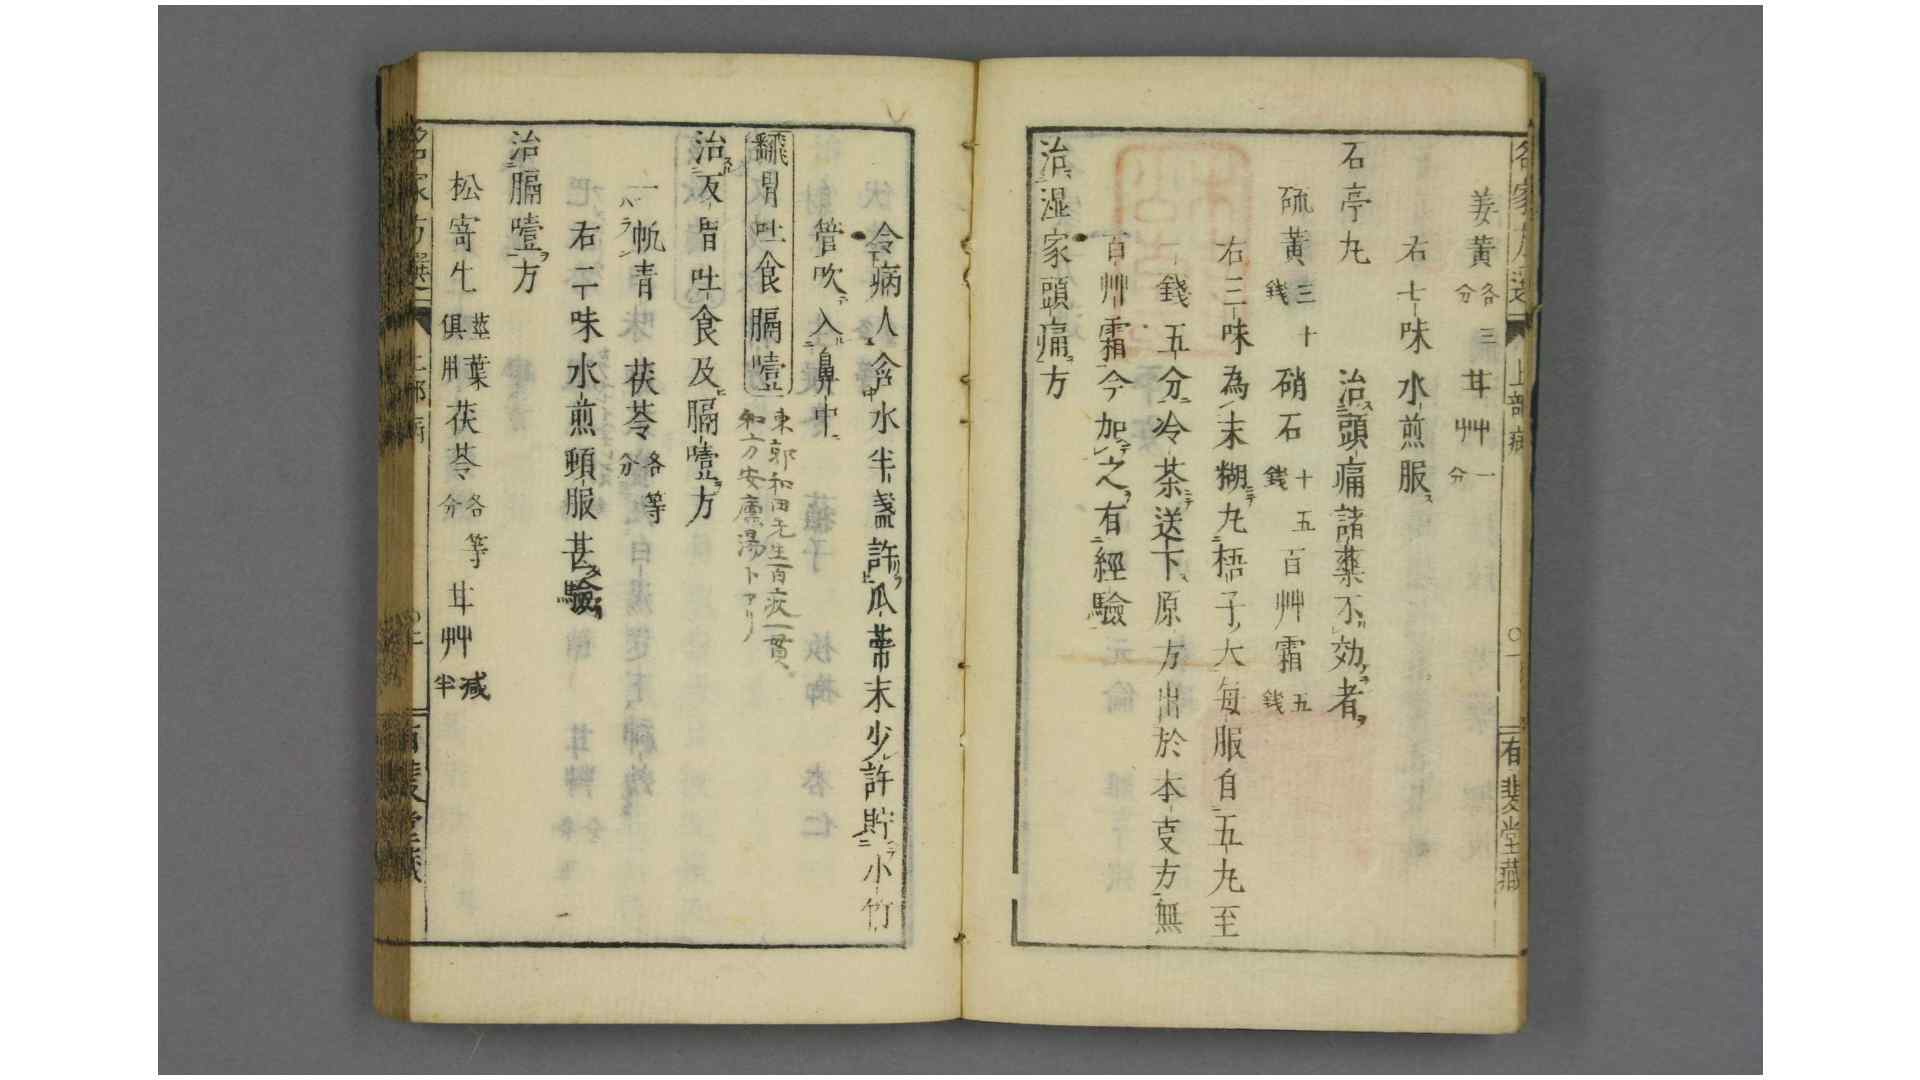 姜黄各三分 甘艸一分
右七味水煎服ス
石亭丸 治頭痛諸藥不効者
硫黄三十錢 硝石十五錢 百艸霜五錢
右三味為末糊丸梧子大每服自五丸至
一錢五分冷茶送下原方出於本支方無
百艸霜今加之有經驗
治湿家頭痛方
令病人含水半盞許瓜蒂末少許貯小竹
管吹入鼻中
飜胃吐食膈噎
東郭和田先生百疢一貫
和方安廩湯トアリ
治反胃吐食及膈噎方
一帆青 茯苓各等分
右二味水煎頓服甚驗
治膈噎方
松寄生莖葉俱用 茯苓各等分 甘艸減半
名家方選 上部病 有斐堂藏